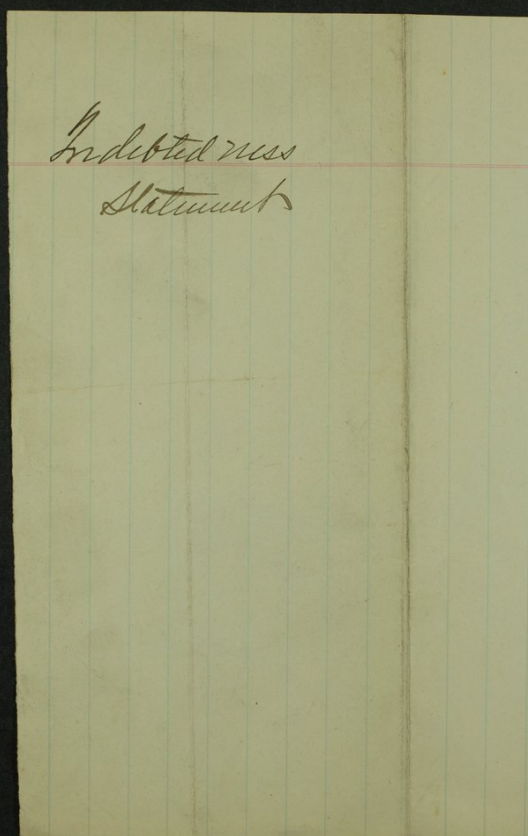 Indebtedness
Statement